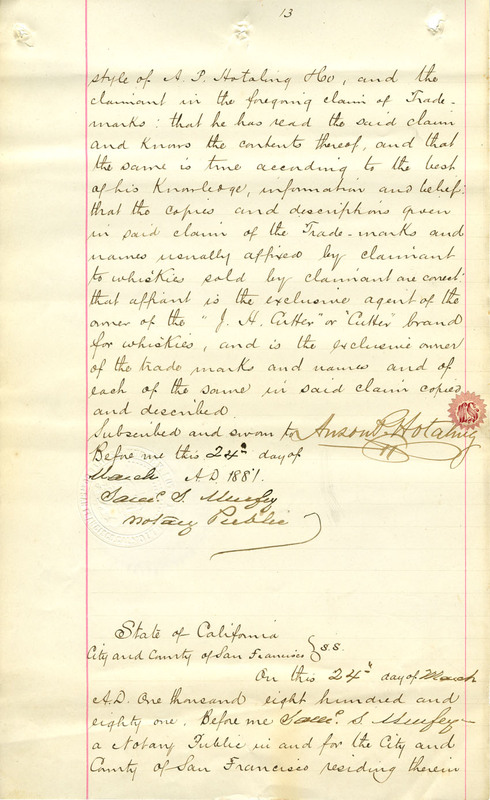 13
style of A. P. Hotaling & Co, and the
claimant in the foregoing claim of Trade-
marks: that he has read the said claim
and knows the contents thereof, and that
the same is true according to the best
of his Knowledge, information and belief:
that the copies and descriptions given
in said claim of the Trade-marks and
names usually affixed by claimant
to whiskies sold by claimant are correct;
that affiant is the exclusive agent of the
owner of the "J. H. Cutter" or "Cutter" brand
for whiskies, and is the exclusive owner
of the trade marks and names and of
each of the same in said claim copied
and described.
Subscribed and sworn to Anson P. Hotaling
Before me this 24th day of
March A.D. 1881.
Saml. S. Murfey
Notary Public
State of California
City and County of San Francisco } S.S.
On this 24th day of March
A.D. One thousand eight hundred and
eighty one. Before me Saml. S. Murfey
a Notary Public in and for the City and
County of San Francisco residing therein